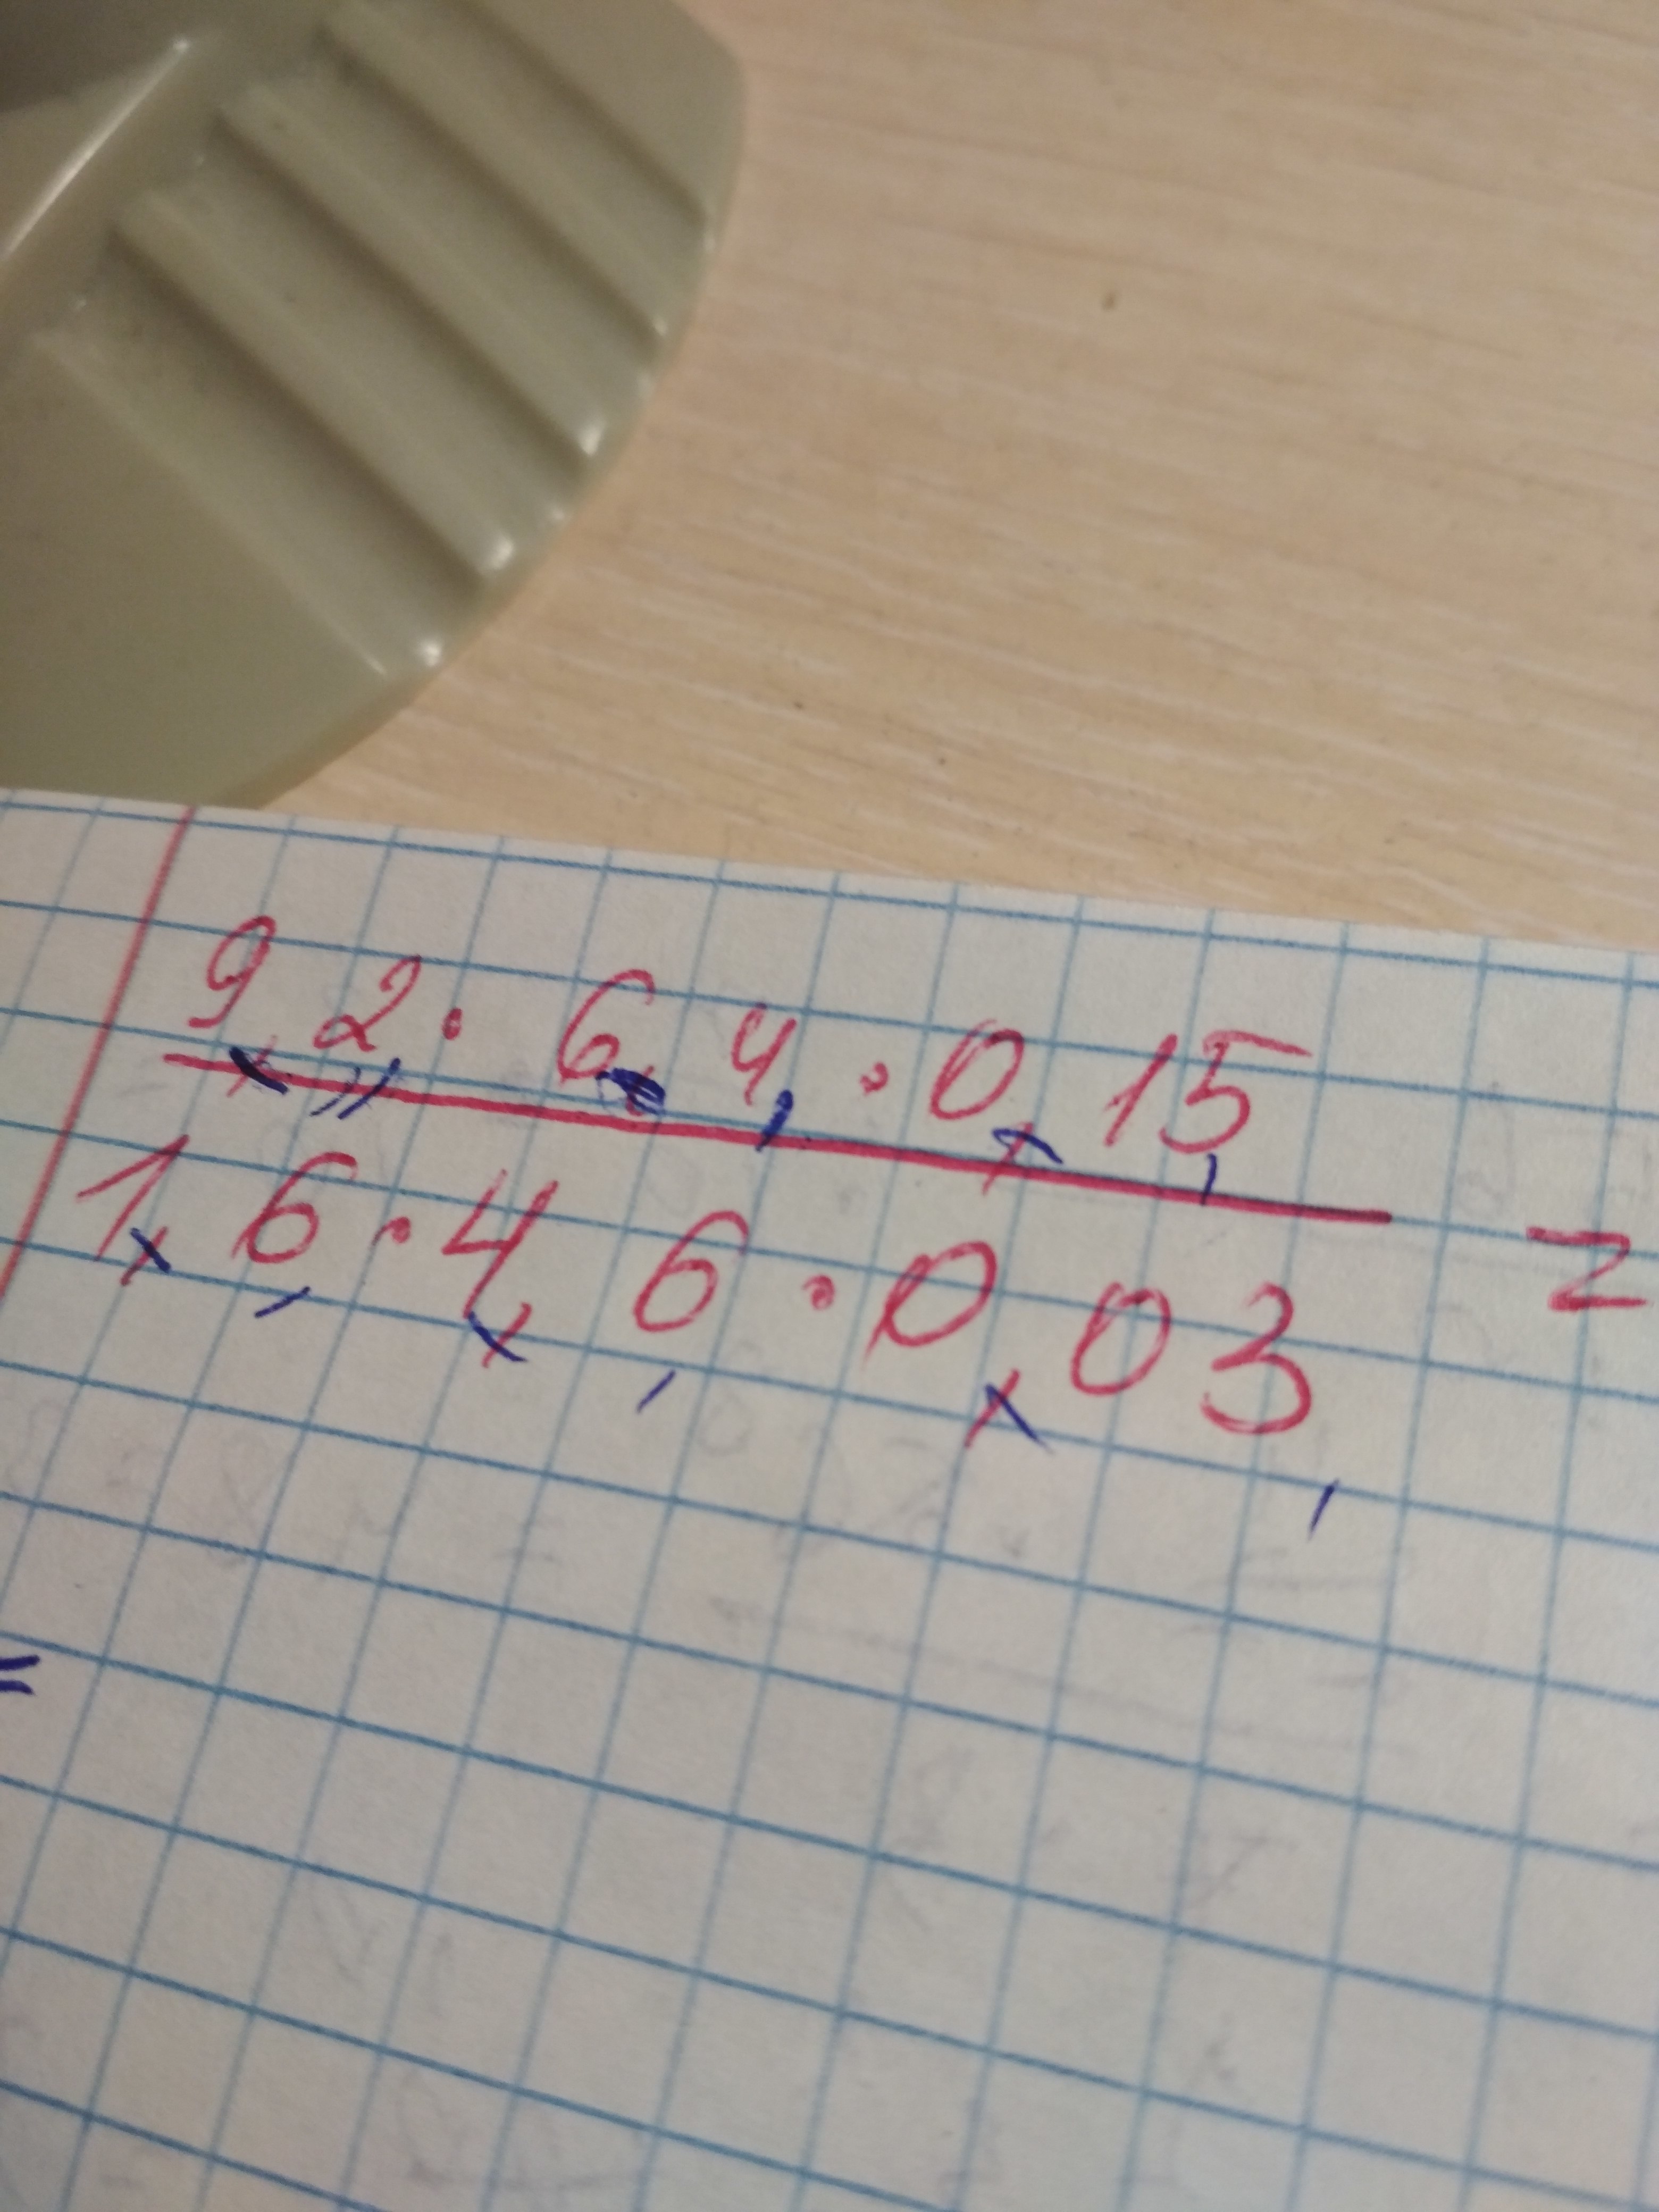 9,2 · 6,4 · 0,15 =
1,6 · 4,6 · 0,03
=